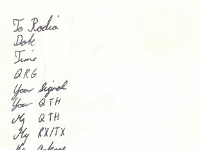 To Radio
Date
Time
QRG
Your Signal
Your QTH
My QTH
My RX/TX
My Antenna